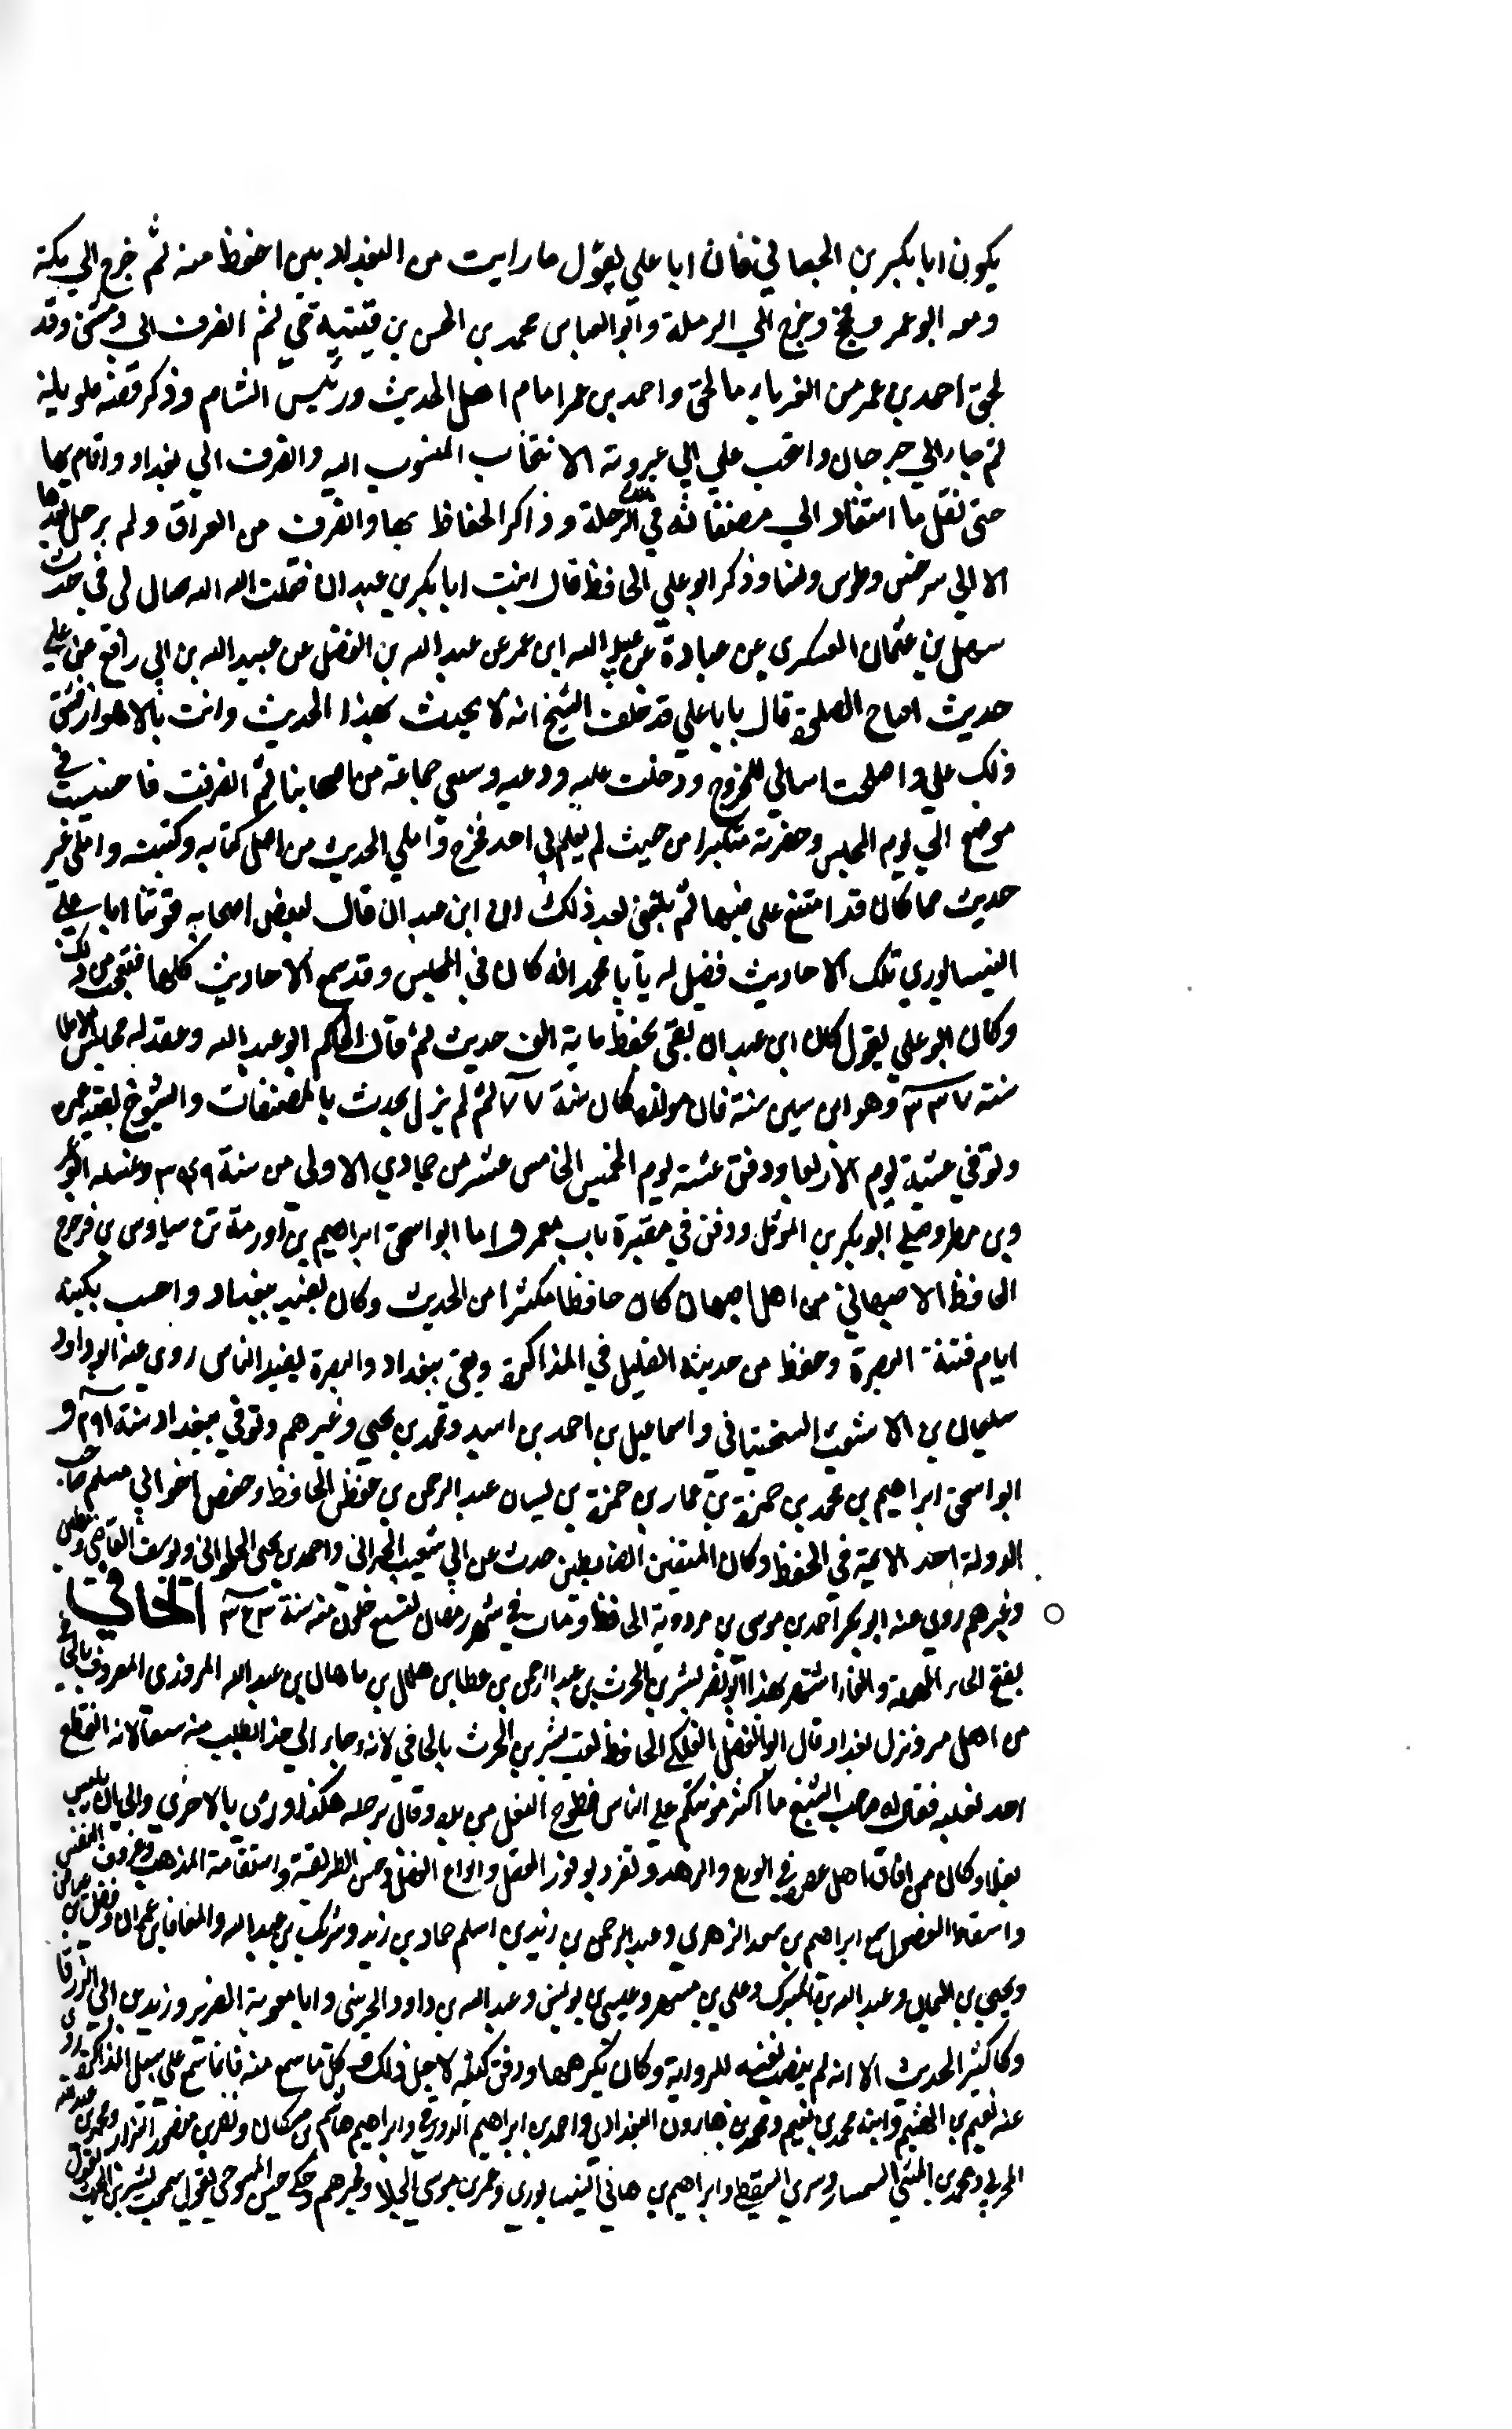 يكون ابا بكر بن الجعابي فان ابا علي يقول ما رايت من البغداديين احفظ منه ثم خرج الي مكة
ومعه ابو عمر فحج وخرج الي الرملة وابو العباس محمد بن الحسن بن قتيبة حي ثم انصرف الي دمشق وقد
لحق احمد بن عمر من الغرباء ما لحق واحمد بن عمر امام اهل الحديث ورئيس الشام وذكر قصة طويلة
ثم جا الي حران وانتخب علي ابي عروبة الانتخاب المنسوب اليه وانصرف الي بغداد واقام بها
حتى نقل ما استفاد الي مصنفاته في تلك الرحلة وذاكر الحفاظ بها وانصرف من العراق ولم يرحل بعدها
الا الي سرخس وطوس ونسا وذكر ابو علي الحافظ قال اتيت ابا بكر بن عبدان فقلت الله الله تحتال لي في حديث
سهل بن عثمان العسكري عن جنادة عن عبيد الله ابن عمر عن عبد الله بن الفضل عن عبيد الله بن ابي رافع عن علي
حديث افتتاح الصلوة قال يابا علي قد حلف الشيخ انه لا يحدث بهذا الحديث وانت بالاهواز فشق
ذلك علي واصلحت اسبابي للخروج ودخلت عليه ودعته وشيعني جماعة من اصحابنا ثم انصرفت فاختبيت في
موضع الي يوم المجلس وحضرته متنكرا من حيث لم يعلم بي احد فخرج واملي الحديث من اصل كتابه وكتبته واملي غير
حديث مما كان قد امتنع علي فيها ثم بلغني بعد ذلك ان ابن عبدان قال لبعض اصحابه فوتنا ابا علي
النيسابوري تلك الاحاديث فقيل له يابا محمد انه كان في المجلس وقد سمع الاحاديث كلها فتعجب من ذلك
وكان ابو علي يقول كان ابن عبدان يفي بحفظ ماية الف حديث ثم قال الحاكم ابو عبد الله وعقد له مجلس الاملا
سنة ٣٣٧ وهو ابن ستين سنة فان مولده كان سنة ٢٧٧ ثم لم يزل يحدث بالمصنفات والشيوخ بقية عمره
وتوفي عشية يوم الاربعا ودفن عشية يوم الخميس الخامس عشر من جمادي الاولى من سنة ٣٤٩ وغسله ابو عمر
وبن مطر وصلي ابو بكر بن المومل ودفن في مقبرة باب معمر واما ابو اسحق ابراهيم بن اورمة بن سياوس بن فروخ
الحافظ الاصبهاني من اهل اصبهان كان حافظا مكثرا من الحديث وكان يفيد ببغداد واصيب بكتبه
ايام فتنة البصرة وحفظ من حديثه القليل في المذاكرة وبقي ببغداد والبصرة يفيد الناس روى عنه ابو داود
سليمان بن الاشعث السجستاني واسماعيل بن احمد بن اسيد ومحمد بن يحيي وغيرهم وتوفي ببغداد سنة و
ابو اسحق ابراهيم بن محمد بن حمزة بن عمارة بن حمزة بن يسار عبد الرحمن بن حفظ الحافظ وحفص اخو ابي مسلم صاحب
الدولة احد الايمة في الحفظ وكان المتقنين الضابطين حدث عن ابي شعيب الحراني واحمد بن يحيى الحلواني ويوسف القاضي ومطين
وغيرهم روى عنه ابو بكر احمد بن موسى بن مردوية الحافظ ومات في شهر رمضان لتسع خلون منه سنة الحافي
بفتح الحاء المهملة والفاء اشتهر بهذا ابو نصر بشر بن الحرث بن عبد الرحمن بن عطا بن هلال بن ماهان بن عبد الله المروزي المعروف بالحافي
من اهل مرو نزل بغداد قال ابو الفضل الفلكي الحافظ لقب بشر بن الحرث بالحافي لانه جاء الي حذا يطلب منه شسعا لانه انقطع
احد نعليه فقال له صاحب الشسع ما اكثر مونتكم علي الناس فطرح النعل من يده وقال برجله هكذا ورمى بالاخرى والي ان لا يلبس
نعلا وكان ممن فاق اهل عصره في الورع والزهد وتفرد بوفور العقل وانواع الفضل وحسن الطريقة واستقامة المذهب وعزوف النفس
واسقاط الفضول سمع ابراهيم بن سعد الزهري وعبد الرحمن بن زيد بن اسلم حماد بن زيد وشريك بن عبد الله والمعافا بن عمران وفضيل بن عياض
ويحيي بن اليمان وعبد الله بن المبارك وعلي بن مسهر وعيسى بن يونس وعبد الله بن داود الخريبي وابا معوية الضرير وزيد بن ابي الزرقا
وكا كثير الحديث الا انه لم ينصب نفسه للرواية وكان يكرهها ودفن كتبه لاجل ذلك وكل ما سمع منه فانما سمع علي سبيل المذاكرة روى
عنه نعيم بن الهيثم وابنه محمد بن نعيم ومحمد بن هارون البغدادي واحمد بن ابراهيم الدورقي وابراهيم هاشم بن مشكان ونصر بن منصور البزاز ومحمد بن عبد الله
المخرمي ومحمد بن المثني السمسار وسري السقطي وابراهيم بن هاني النيسابوري وعمر بن موسي الجلا وغيرهم وحكي حسن المسوحي يقول سمعت بشر بن الحرث يقول